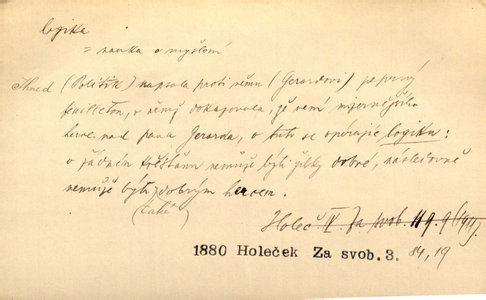 logika
= nauka o myšlení
Ihned (Politik) napsala proti němu (Gerardovi) peprný
feuilleton, v němž dokazovala, že není mizernějšího
herce nad pana Gerarda, o tuto se opírajíc logiku:
v žádném křesťanu nemůže býti žilky dobré, následovně
nemůže býti dobrým hercem.
(také)
Holeč IV. Za svob. 119. 9 (1911).
1880 Holeček Za svob. 3. 84, 19